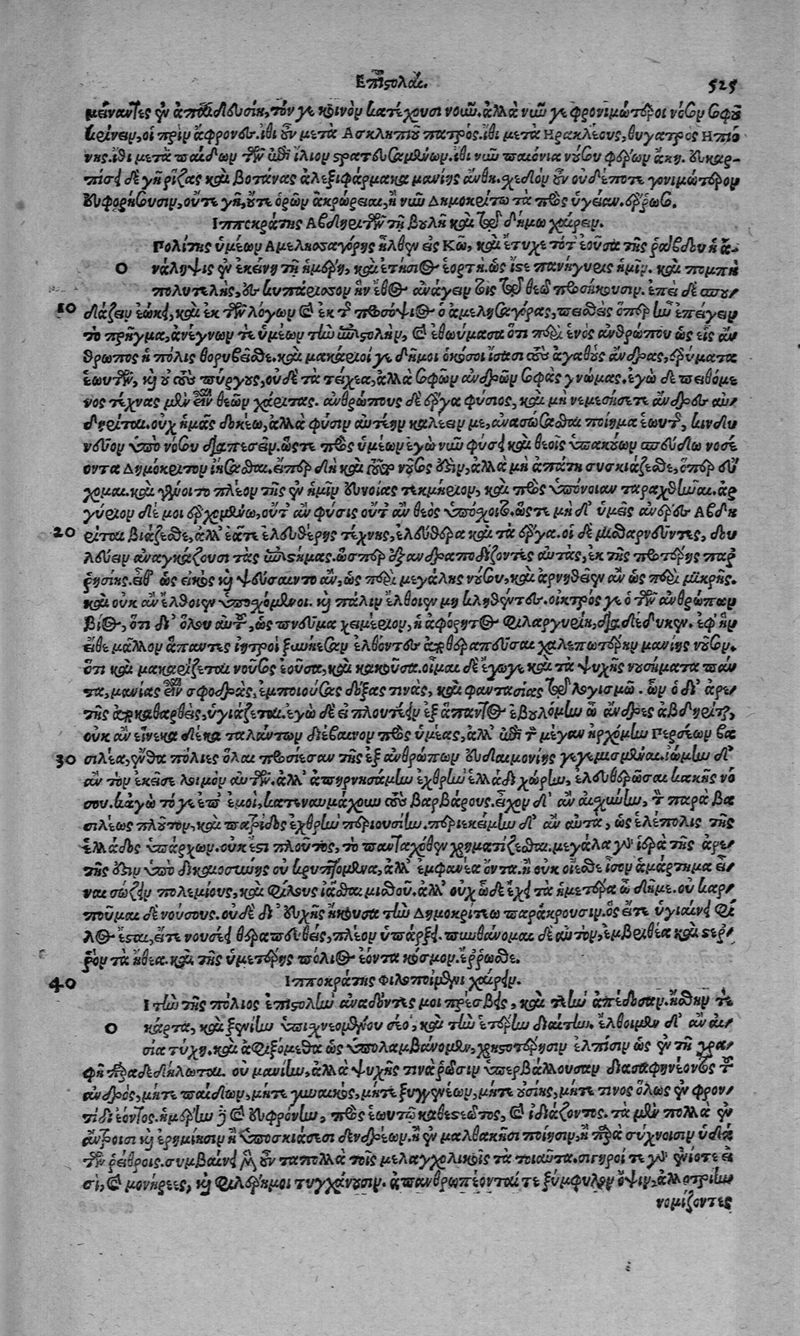 Επιστολαί. 525
μείναντες ἐν ἀπαιδευσίῃ, τόν γε κοινὸν κατέχουσι νοῦν. ἀλλὰ νῦν γε φρονιμώτεροι νόσον σοφοῦ
κρίνειν, οἱ πρὶν ἄφρονες. ἴθι οὖν μετὰ Ασκληπιοῦ πατρός. ἴθι μετὰ Ηρακλέους, θυγατρὸς Ηπιό-
νης. ἴθι μετὰ παίδων τῶν ἐπὶ ἴλιον στρατευσαμένων. ἴθι νῦν παιόνια νούσου φέρων ἄκη. εὐκαρ-
πίσει δὲ γῆ ῥίζας καὶ βοτάνας ἀλεξιφάρμακα μανίης ἄνθη. σχεδὸν οὖν οὐδέποτε γονιμώτερον
εὐφορήσουσιν, οὔτε γῆ, οὔτε ὀρῶν ἀκρώρειαι, ἢ νῦν Δημοκρίτῳ τὰ πρὸς ὑγείαν. ἔρρωσο.
Ιπποκράτης Αβδηριτῶν τῇ βουλῇ καὶ τῷ δήμῳ χαίρειν.
Πολίτης ὑμέων Αμελησαγόρης ἦλθεν εἰς Κῶ, καὶ ἔτυχε τότ' ἐοῦσα τῆς ῥάβδου ἡ ἀ-
Ο νάληψις ἐν ἐκείνῃ τῇ ἡμέρῃ, καὶ ἐτήσιος ἑορτὴ. ὡς ἴστε πανήγυρις ἡμῖν. καὶ πομπὴ
πολυτελὴς, ἐς κυπάρισσον ἣν ἔθος ἀνάγειν τοῖς τῷ θεῷ προσήκουσιν. ἐπεὶ δὲ σπου-
10 δάζειν ἐῴκει, καὶ ἐκ τῶν λόγων καὶ ἐκ τῆς προσόψιος ὁ ἀμελησαγόρας, πεισθεὶς ὅπερ ἦν ἐπείγειν
τὸ πρῆγμα, ἀνέγνων τε ὑμέων τὴν ἐπιστολὴν, καὶ ἐθαύμασα ὅτι περὶ ἑνὸς ἀνθρώπου ὡς εἷς ἄν-
θρωπος ἡ πόλις θορυβεῖσθε. καὶ μακάριοί γε δῆμοι ὁκόσοι ἴσασι τοὺς ἀγαθοὺς ἄνδρας, ἐρύματα
ἑωυτῶν, καὶ οὐ τοὺς πύργους, οὐδὲ τὰ τείχεα, ἀλλὰ σοφῶν ἀνδρῶν σοφὰς γνώμας. ἐγὼ δὲ πειθόμε-
νος τέχνας μὲν εἶναι θεῶν χάριτας. ἀνθρώπους δὲ ἔργα φύσιος, καὶ μὴ νεμεσήσετε ἄνδρες αβ-
δηρῖται. οὐχ ἡμᾶς δοκέω, ἀλλὰ φύσιν αὐτὴν καλέειν με, ἀνασώσασθαι ποίημα ἑωυτῆς, κινδυ-
νεῦον ὑπὸ νόσου διαπεσεῖν. ὥστε πρὸς ὑμέων ἐγὼ νῦν φύσει καὶ θεοῖς ὑπακούων σπεύδω νοσέ-
οντα Δημόκριτον ἰήσασθαι. εἴπερ δὴ καὶ τοῦτο νοῦσος ἐστὶν, ἀλλὰ μὴ ἀπάτῃ συσκιάζεσθε, ὅπερ εὔ-
χομαι. καὶ γένοιτο πλέον τῆς ἐν ἡμῖν εὐνοίας τεκμήριον, καὶ πρὸς ὑπόνοιαν ταραχθῆναι. ἀρ-
γύριον δέ μοι ἐρχομένῳ, οὔτ' ἂν φύσις οὔτ' ἂν θεὸς ὑπόσχοιτο. ὥστε μὴ δ' ὑμεῖς ἄνδρες Αβδη-
20 ρῖται βιάζεσθε, ἀλλ' ἐᾶτε ἐλευθέρης τέχνης, ἐλεύθερα καὶ τὰ ἔργα. οἱ δὲ μισθαρνεῦντες, δου-
λεύειν ἀναγκάζουσι τὰς ἐπιστήμας. ὥσπερ ἐξανδραποδίζοντες αὐτὰς, ἐκ τῆς προτέρης παρ-
ρησίης. εἶθ' ὡς εἰκὸς καὶ ψεύσαιντο ἂν, ὡς περὶ μεγάλης νούσου, καὶ ἀρνηθεῖεν ἂν ὡς περὶ μικρῆς.
καὶ οὐκ ἂν ἔλθοιεν ὑποσχόμενοι. καὶ πάλιν ἔλθοιεν μὴ κληθέντες. οἰκτρός γε ὁ τῶν ἀνθρώπων
βίος, ὅτι δι' ὅλου αὐτοῦ, ὡς πνεῦμα χειμέριον, ἡ ἀφόρητος Φιλαργυρίη, διαδέδυκεν. ἐφ' ἣν
εἴθε μᾶλλον ἅπαντες ἰητροὶ ξυνῄεσαν ἐλθόντες ἀποθεραπεῦσαι χαλεπωτέρην μανίης νοῦσον.
ὅτι καὶ μακαρίζεται νοῦσος ἐοῦσα, καὶ κακοῦσα. οἶμαι δὲ ἔγωγε καὶ τὰ ψυχῆς νουσήματα πάν-
τα, μανίας εἶναι σφοδρὰς, ἐμποιούσας δόξας τινὰς, καὶ φαντασίας τῷ λογισμῷ. ὧν ὁ δι' ἀρε-
τῆς ἀποκαθαρθεὶς, ὑγιάζεται. ἐγὼ δὲ εἰ πλουτεῖν ἐξ ἅπαντος ἐβουλόμην ὦ ἄνδρες ἀβδηρῖται,
οὐκ ἂν εἵνεκα δέκα ταλάντων διέβαινον πρὸς ὑμέας, ἀλλ' ἐπὶ τὸν μέγαν ἠρχόμην Περσέων βα-
30 σιλέα, ἔνθα πόλιες ὅλαι προσίεσαν τῆς ἐξ ἀνθρώπων εὐδαιμονίης γεγεμισμέναι. ἰώμην δ'
ἂν τὸν ἐκεῖσε λοιμὸν αὐτῶν. ἀλλ' ἀπηρνησάμην ἐχθρὴν ἑλλάδι χώρην, ἐλευθερῶσαι κακῆς νό-
σου. κἀγὼ τό γε ἐπ' ἐμοὶ, κατεναυμάχουν τοὺς βαρβάρους. εἶχον δ' ἂν αἰσχύνην, τὸν παρὰ βα-
σιλέως πλοῦτον, καὶ πατρίδος ἐχθρὴν περιουσίην. περιεκείμην δ' ἂν αὐτὰ, ὡς ἑλέπολις τῆς
ἑλλάδος ὑπάρχων. οὐκ ἔστι πλοῦτος, τὸ πανταχόθεν χρηματίζεσθαι. μεγάλα γὰρ ἱερὰ τῆς ἀρε-
τῆς ἐστὶν ὑπὸ δικαιοσύνης οὐ κρυπτόμενα, ἀλλ' ἐμφανέα ὄντα. ἢ οὐκ οἴεσθε ἶσον ἁμάρτημα εἶ-
ναι σώζειν πολεμίους, καὶ φίλους ἰᾶσθαι μισθοῦ. ἀλλ' οὐχ ὧδε ἔχει τὰ ἡμέτερα ὦ δῆμε. οὐ καρ-
ποῦμαι δὲ νούσους. οὐδὲ δι' εὐχῆς ἤκουσα τὴν Δημοκρίτου παράκρουσιν. ὃς εἴτε ὑγιαίνει φί-
λος ἔσται, εἴτε νουσέει θεραπευθεὶς, πλέον ὑπάρξει. πυνθάνομαι δὲ αὐτὸν, ἐμβριθέα καὶ στερ-
ρὸν τὰ ἤθεα. καὶ τῆς ὑμετέρης πόλιος ἐόντα κόσμον. ἔρρωσθε.
40 Ιπποκράτης Φιλοποίμενι χαίρειν.
Οἱ τὴν τῆς πόλιος ἐπιστολὴν ἀναδόντες μοι πρέσβεις, καὶ τὴν σὴν ἀπέδοσαν. ἥσθην τε
κάρτα, καὶ ξενίην ὑπισχνεομένου σέο, καὶ τὴν ἑτέρην δίαιταν. ἔλθοιμεν δ' ἂν αἰ-
σίᾳ τύχῃ. καὶ ἀφιξόμεθα ὡς ὑπολαμβάνομεν, χρηστοτέρῃσιν ἐλπίσιν ὡς ἐν τῇ γρα-
φῇ παραδεδήλωται. οὐ μανίην, ἀλλὰ ψυχῆς τινὰ ῥῶσιν ὑπερβάλλουσαν διασαφηνέοντος τοῦ
ἀνδρός, μήτε παίδων, μήτε γυναικὸς, μήτε ξυγγενέων, μήτε οὐσίης, μήτε τινος ὅλως ἐν φρον-
τίδι ἐόντος. ἡμέρην δὲ καὶ εὐφρόνην, πρὸς ἑωυτῷ καθεστεῶτος, καὶ ἰδιάζοντος. τὰ μὲν πολλὰ ἐν
ἄντροισι καὶ ἐρημίῃσιν ἢ ὑποσκιάσεσι δενδρέων. ἢ ἐν μαλθακῇσι ποίῃσιν. ἢ παρὰ συχνοῖσιν ὑδά-
των ῥείθροις. συμβαίνει μὲν οὖν τὰ πολλὰ τοῖς μελαγχολικοῖς τὰ τοιαῦτα. σιγηροί τε γὰρ ἐνίοτε εἰ-
σὶ, καὶ μονήρεες, καὶ φιλέρημοι τυγχάνουσιν. ἀπανθρωπέονταί τε ξύμφυλον ὄψιν, ἀλλοτρίην
νομίζοντες